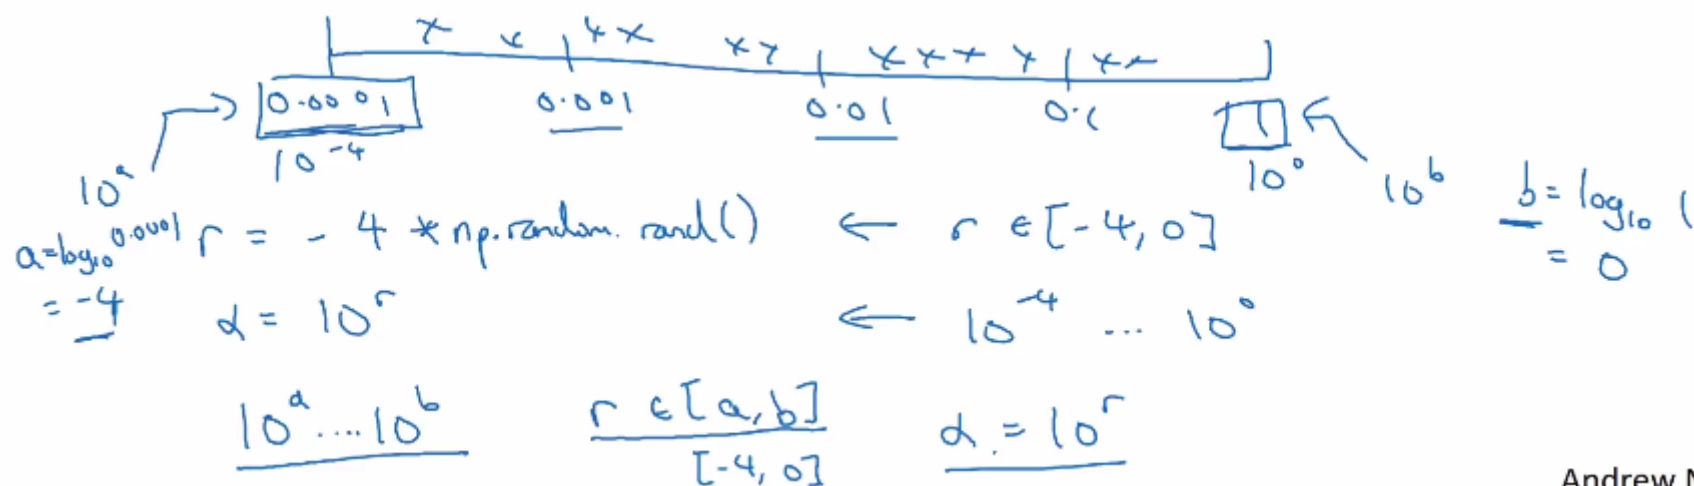 0.0001 0.001 0.01 0.1 1
10^-4 10^0
10^a 10^b b = log10 1
a = log10 0.0001 r = -4 * np.random.rand() ← r ∈ [-4, 0] = 0
= -4 α = 10^r ← 10^-4 ... 10^0
10^a .... 10^b r ∈ [a, b] α = 10^r
[-4, 0]
Andrew N